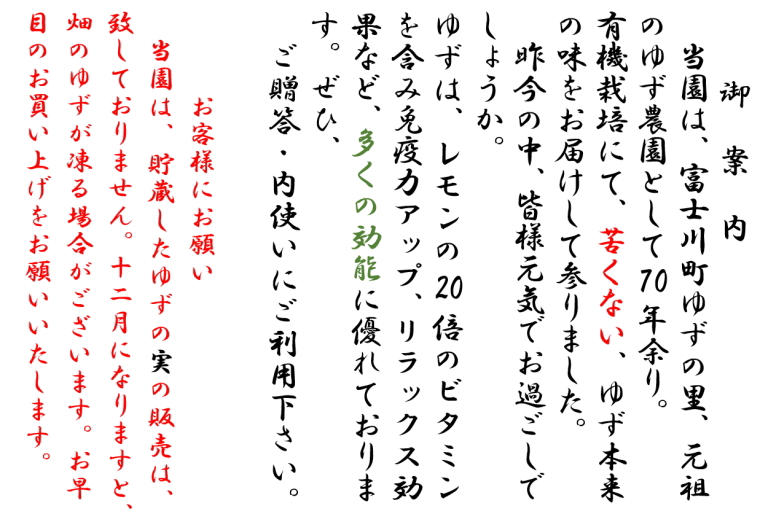 御案内
当園は、富士川町ゆずの里、元祖
のゆず農園として70年余り。
有機栽培にて、苦くない、ゆず本来
の味をお届けして参りました。
昨今の中、皆様元気でお過ごしで
しょうか。
ゆずは、レモンの20倍のビタミン
を含み免疫力アップ、リラックス効
果など、多くの効能に優れておりま
す。ぜひ、
ご贈答・内使いにご利用下さい。
お客様にお願い
当園は、貯蔵したゆずの実の販売は、
致しておりません。十二月になりますと、
畑のゆずが凍る場合がございます。お早
目のお買い上げをお願いいたします。